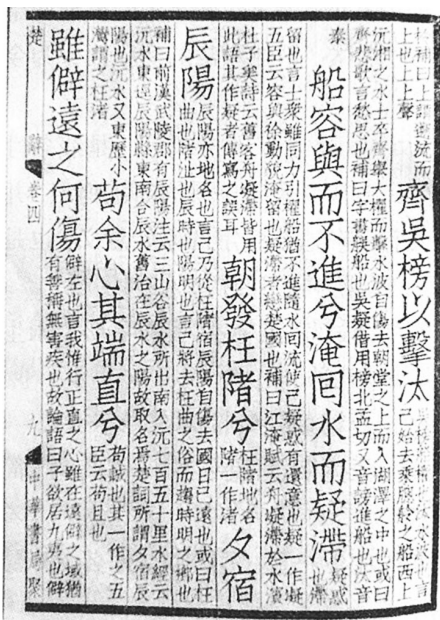 補曰上謂泝流而
上也上上聲
齊吳榜以擊汰
吳榜船櫂也汰水波也言
己始去乘舲之船西上
沅湘之水士卒齊舉大櫂而擊水波自傷去朝堂之上而入湖澤之中也或曰
齊悲歌言愁思也補曰字書船也吳疑借用榜北孟切又音謗進船也汰音
泰
船容與而不進兮淹回水而疑滯
疑惑
也滯
留也言士衆雖同力引櫂船猶不進隨水回流使己疑惑有還意也疑一作凝
五臣云容與徐動貌淹留也疑滯者戀楚國也補曰江淹賦云舟凝滯於水濱
杜子美詩云舊客舟凝滯皆用
此語其作疑者傳寫之誤耳
朝發枉陼兮
枉陼地名
陼一作渚
夕宿
辰陽
辰陽亦地名也言己乃從枉陼宿辰陽自傷去國日已遠也或曰枉
曲也陼沚也辰時也陽明也言己將去枉曲之俗而趨時明之鄉也
補曰前漢武陵郡有辰陽注云三山谷辰水所出南入沅七百五十里水經云
沅水東逕辰陽縣東南合辰水舊治在辰水之陽故取名焉楚詞所謂夕宿辰
陽也沅水又東歷小
灣謂之枉渚
苟余心其端直兮
苟誠也其一作之五
臣云苟且也
雖僻遠之何傷
僻左也言我惟行正直之心雖在遠僻之域猶
有善稱無害疾也故論語曰子欲居九夷也僻
楚辭 卷四 九 中華書局聚